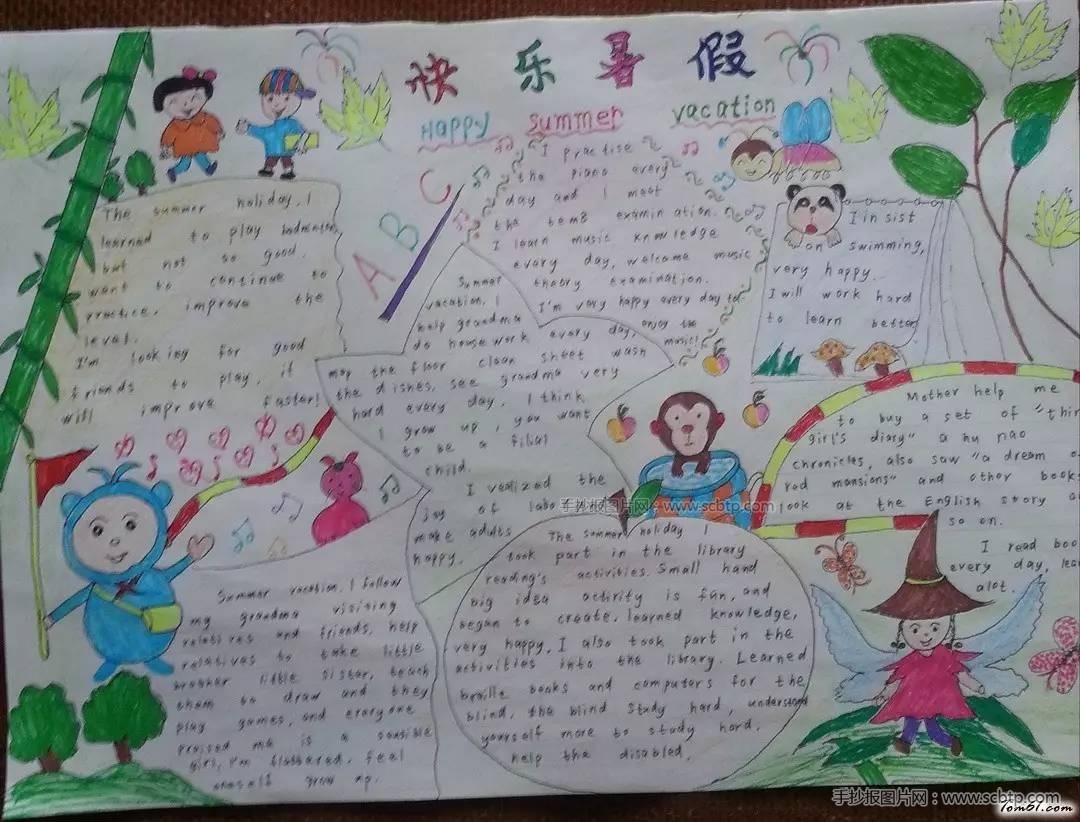 快乐暑假
Happy summer vacation
The summer holiday, I
learned to play badminton,
but not so good.
want to continue to
practice, improve the
level.
I'm looking for good
friends to play, it
will improve faster!
A B C
I practise
the piano every
day and I meet
the tem8 examination.
I learn music knowledge
every day, welcome music
theory examination.
I'm very happy every day to
enjoy the
music!
Summer
vacation, I
help grandma
do housework every day,
mop the floor clean sheet wash
the dishes, see grandma very
hard every day, I think
I grow up, you want
to be a filial
child.
I realized the
joy of labo
make adults
happy.
I insist
on swimming,
very happy.
I will work hard
to learn better
Mother help me
to buy a set of "thin
girl's diary" a hu nao
chronicles, also saw "a dream o
red mansions" and other book
look at the English story a
so on.
I read boo
every day, lea
alot.
Summer vacation, I follow
my grandma visiting
relatives and friends, help
relatives to take little
brother little sister, teach
them to draw and they
play games, and everyone
praised me is a sensible
girl, I'm flattered, feel
oneself grow up.
The summer holiday I
took part in the library
reading's activities. Small hand
big idea activity is fun, and
began to create, learned knowledge,
very happy, I also took part in the
activities into the library. Learned
braille books and computers for the
blind, the blind study hard, understand
yourself more to study hard,
help the disabled.
手抄报图片网：www.scbtp.com
手抄报图片网：www.scbtp.com
Tom61.com